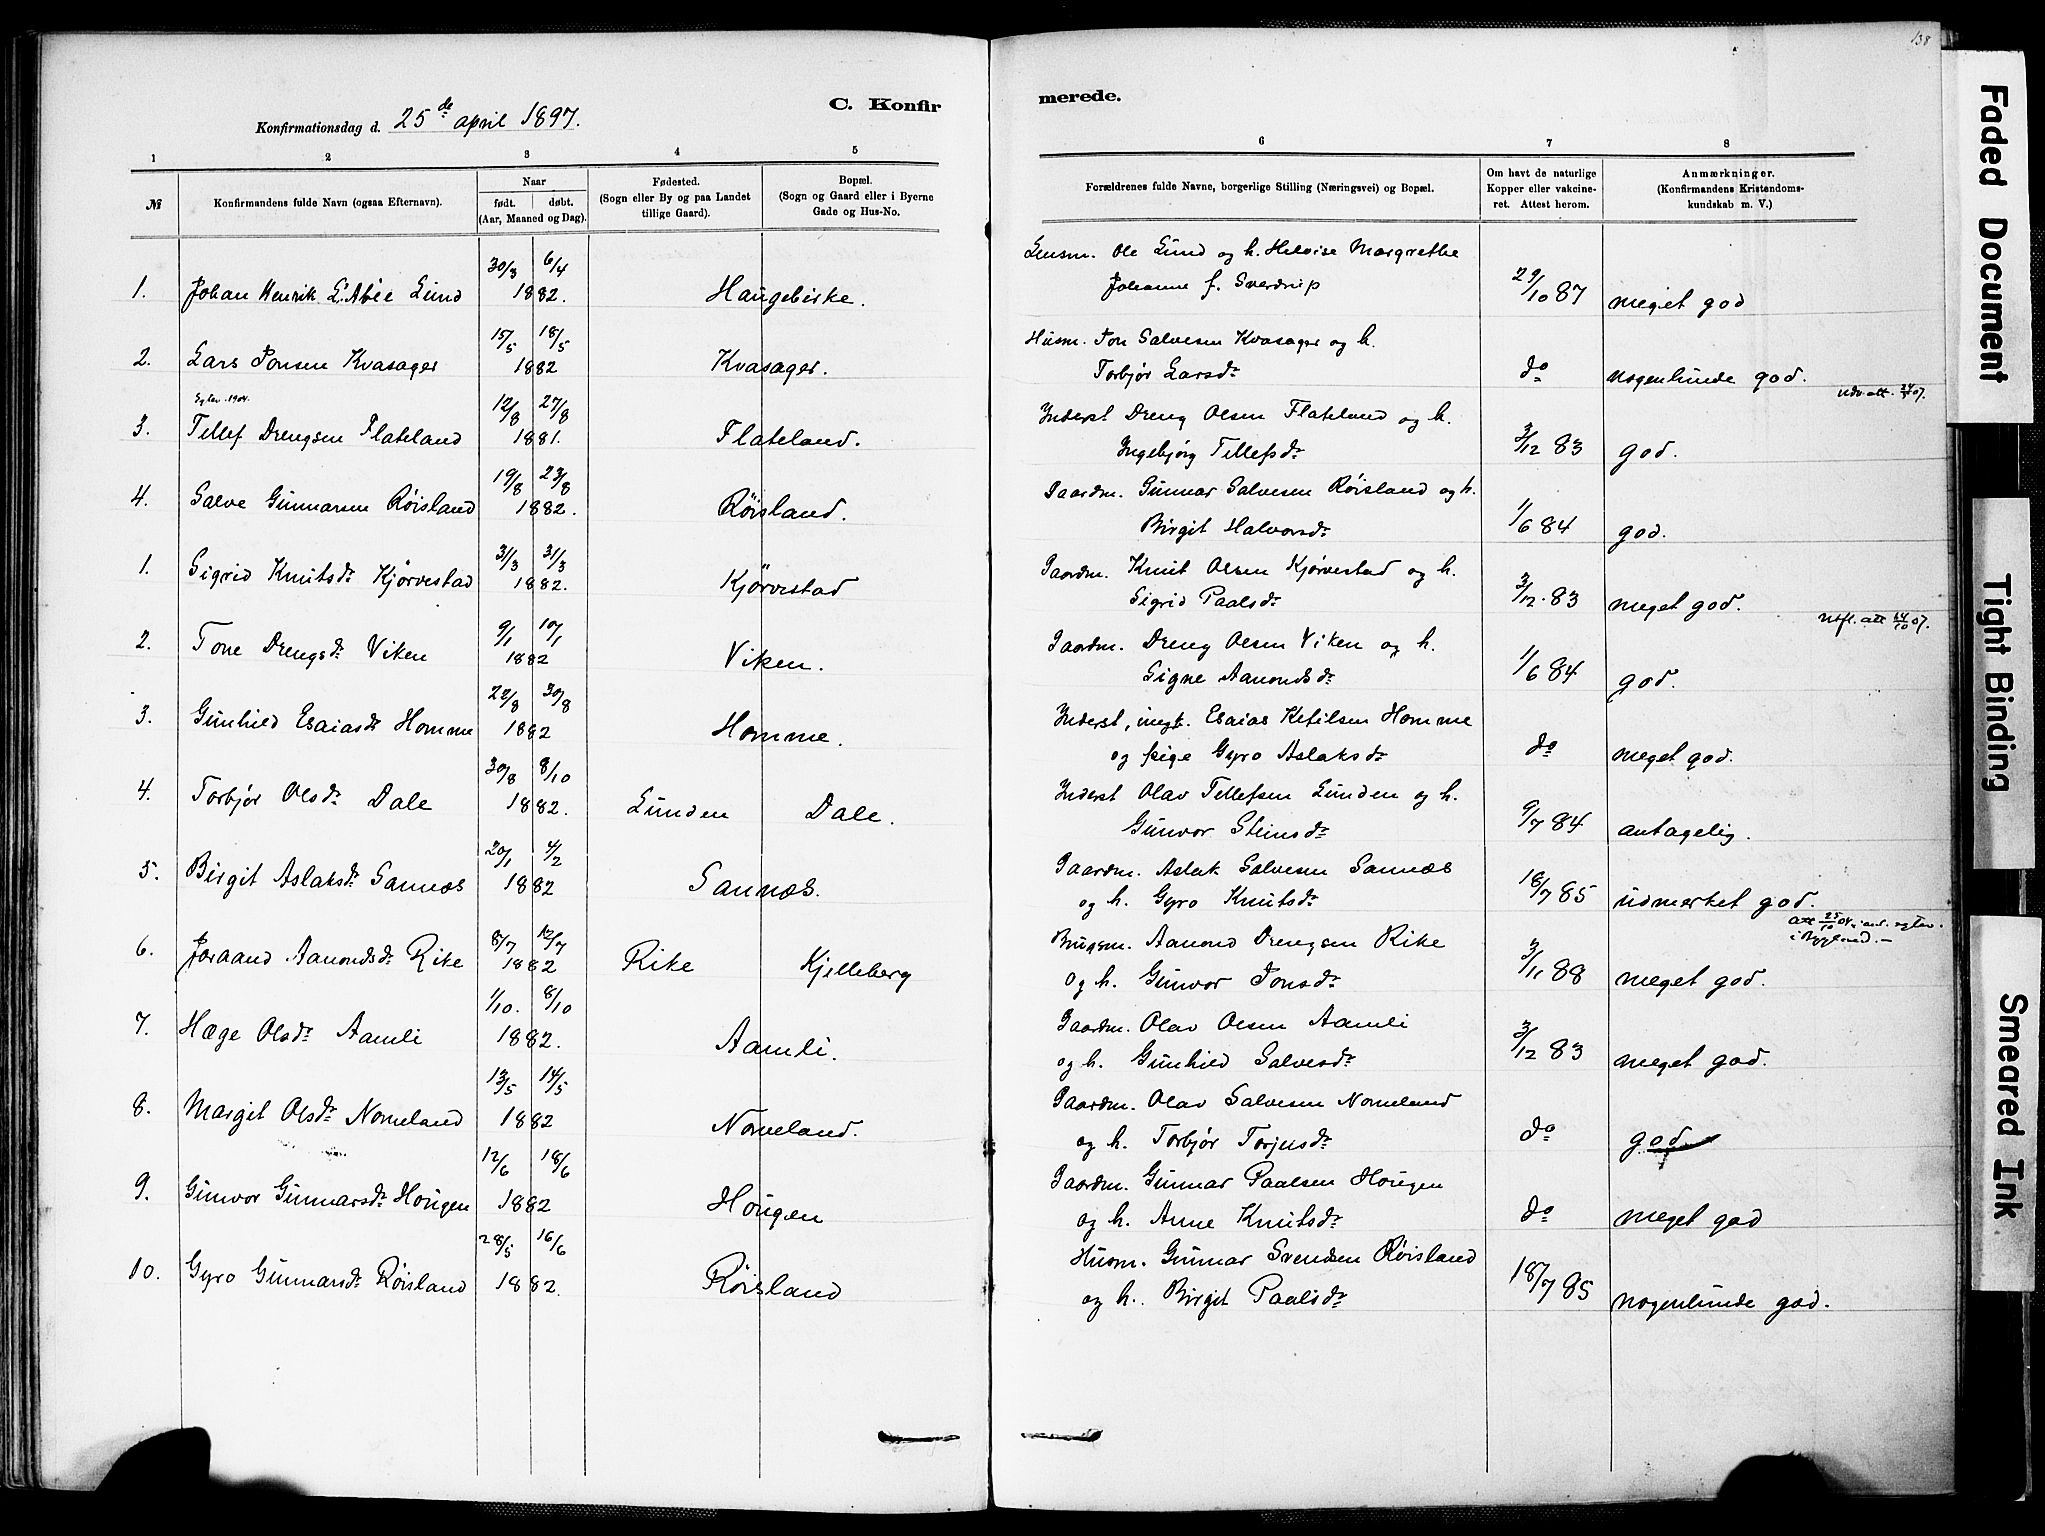 138
C. Konfir
merede.
Konfirmationsdag d. 25de april 1897.
1 2 3 4 5 6 7 8
№
Konfirmandens fulde Navn (ogsaa Efternavn).
Naar
født. døbt.
(Aar, Maaned og Dag).
Fødested.
(Sogn eller By og paa Landet
tillige Gaard).
Bopæl.
(Sogn og Gaard eller i Byerne
Gade og Hus-No.
Forældrenes fulde Navne, borgerlige Stilling (Næringsvei) og Bopæl.
Om havt de naturlige
Kopper eller vakcine-
ret. Attest herom.
Anmærkninger.
(Konfirmandens Kristendoms-
kundskab m. V.)
30/3 6/4 Lensm. Ole Lund og h. Helvise Margrethe
1. Johan Henrik L'Abée Lund 1882. Haugebirke. Johanne f. Sverdrup 29/10 87 meget god
15/5 18/5 Husm. Jon Salvesen Kvasager og h.
2. Lars Jonsen Kvasager 1882 Kvasager. Torbjør Larsdr do nogenlunde god.
1904. 12/8 27/8 Inderst Dreng Olsen Flateland og h.
3. Tellef Drengsen Flateland 1881. Flateland. Ingebjørg Tellefsdr 3/12 83 god.
19/8 23/8 Gaardm. Gunnar Salvesen Røisland og h.
4. Salve Gunnarsen Røisland 1882. Røisland. Birgit Halvorsdr 1/6 84 god.
3/3 31/3 Gaardm. Knut Olsen Kjørvestad og h.
1. Sigrid Knutsdr Kjørvestad 1882. Kjørvestad Sigrid Paalsdr 3/12. 83 meget god.
9/1 10/1 Gaardm. Dreng Olsen Viken og h.
2. Tone Drengsdr Viken 1882 Viken. Signe Aanondsdr 1/6 84 god.
22/8 30/8 Inderst, ingk. Esaias Ketilsen Homme
3. Gunhild Esaiasdr Homme 1882 Homme. og pige Gyro Aslaksdr do meget god.
30/8 8/10 Inderst Olav Tellefsen Lunden og h.
4. Torbjør Olsdr Dale 1882. Lunden Dale. Gunvor Steinsdr 9/7 84 antagelig.
20/1 4/2 Gaardm. Aslak Salvesen Sannæs
5. Birgit Aslaksdr Sannæs 1882 Sannæs. og h. Gyro Knutsdr 18/7 85 udmerket god.
i Bygland.
8/7 12/7 Brugsm. Aanond Drengsen Rike
6. Joraand Aanondsdr Rike 1882 Rike Kjelleberg og h. Gunvor Jonsdr 3/11 88 meget god.
1/10. 8/10 Gaardm. Olav Olsen Aamli
7. Hæge Olsdr Aamli 1882. Aamli. og h. Gunhild Salvesdr 3/12 83 meget god.
13/5 14/5 Gaardm. Olav Salvesen Nomeland
8. Margit Olsdr Nomeland 1882 Nomeland. og h. Torbjør Torjusdr do god
12/6 18/6 Gaardm. Gunnar Paalsen Hougen
9. Gunvor Gunnarsdr Hougen 1882 Hougen og h. Anne Knutsdr do meget god
28/5 16/6 Husm. Gunnar Svendsen Røisland
10. Gyro Gunnarsdr Røisland 1882. Røisland og h. Birgit Paalsdr 18/7 85 nogenlunde god.
Faded Document
Tight Binding
Smeared Ink